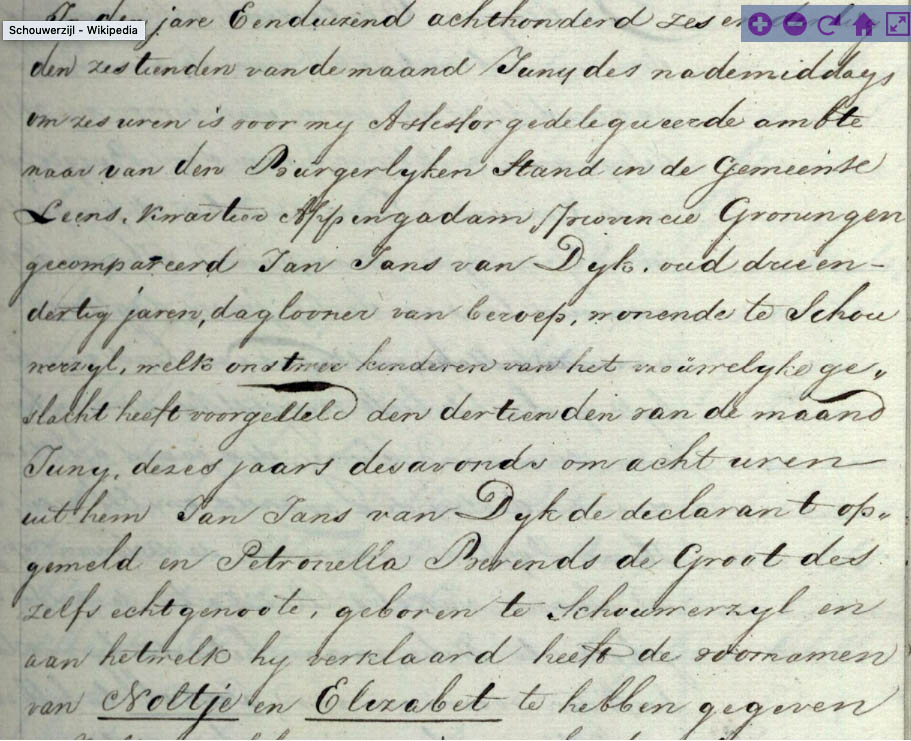 In de jare Eenduizend achthonderd zes en
Schouwerzijl - Wikipedia
den zestienden van de maand Juny des nademiddags
om zes uren is voor my Assessor gedelegueerde ambte
naar van den Burgerlyken Stand in de Gemeente
Leens, Kwartier Appingadam Provincie Groningen
gecompareerd Jan Jans van Dyk, oud drieen-
dertig jaren, daglooner van beroep, wonende te Schou
werzyl, welk ons twee kinderen van het vroüwelyke ge„
slacht heeft voorgesteld den dertienden van de maand
Juny, dezes jaars des avonds om acht uren
uit hem Jan Jans van Dyk de declarant op„
gemeld en Petronella Berends de Groot des
zelfs echtgenoote, geboren te Schouwerzyl en
aan hetwelk hy verklaard heeft de voornamen
van Noltje en Elizabet te hebben gegeven